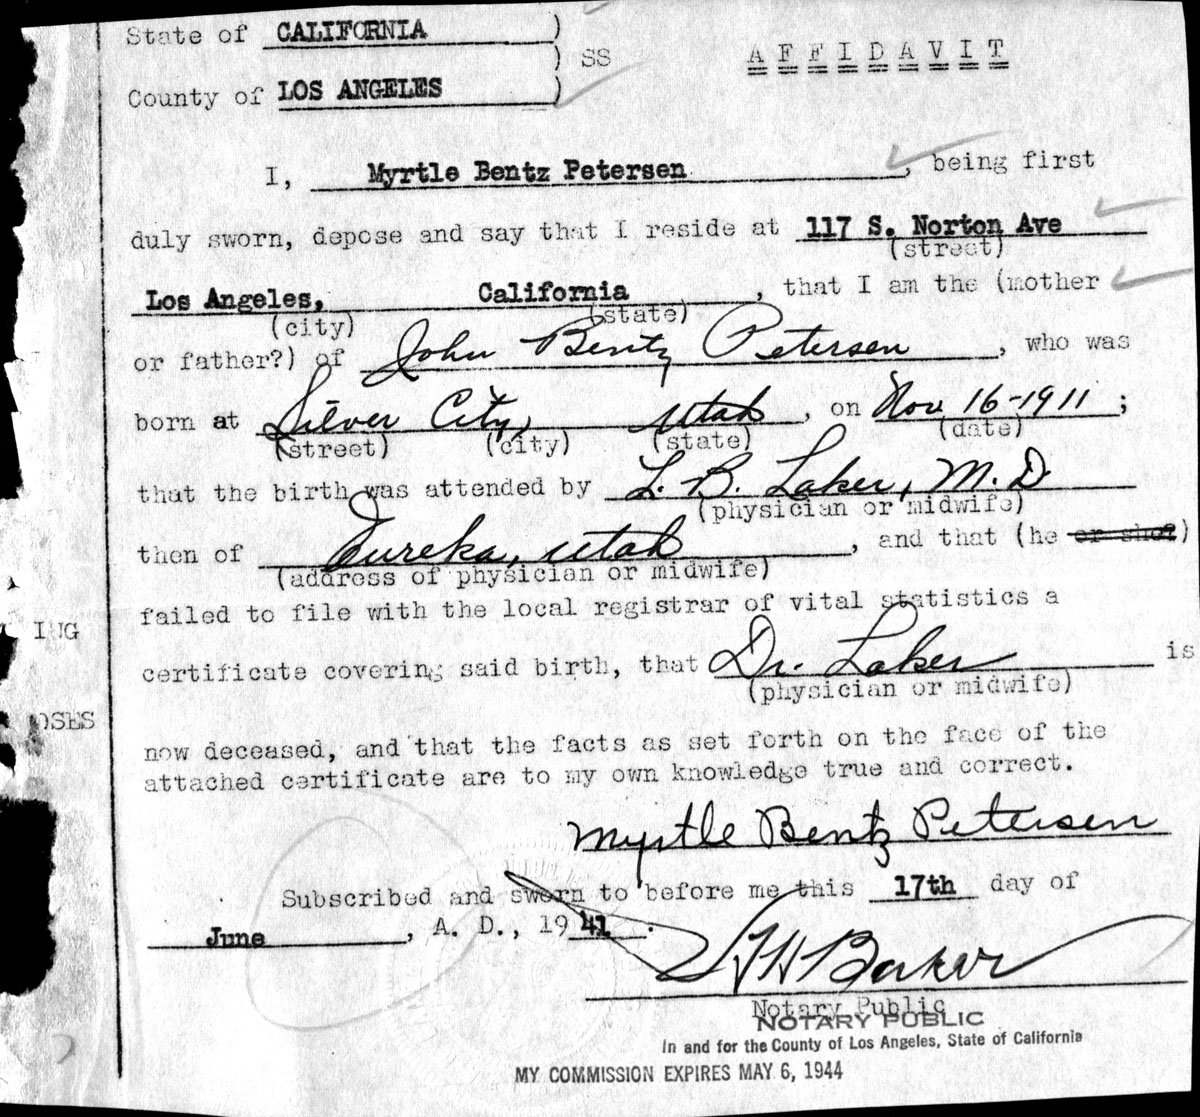 State of CALIFORNIA )
) SS AFFIDAVIT
County of LOS ANGELES )
I, Myrtle Bentz Petersen, being first
duly sworn, depose and say that I reside at 117 S. Norton Ave
(street)
Los Angeles, California, that I am the (mother
(city) (state)
or father?) of John Bentz Petersen, who was
born at Silver City, Utah, on Nov. 16-1911;
(street) (city) (state) (date)
that the birth was attended by L. B. Laker, M.D
(physician or midwife)
then of Eureka, Utah, and that (he or she?)
(address of physician or midwife)
failed to file with the local registrar of vital statistics a
ING
certificate covering said birth, that Dr. Laker is
(physician or midwife)
OSES
now deceased, and that the facts as set forth on the face of the
attached certificate are to my own knowledge true and correct.
Myrtle Bentz Petersen
Subscribed and sworn to before me this 17th day of
June, A. D., 1941.
Baker
Notary Public
NOTARY PUBLIC
In and for the County of Los Angeles, State of California
MY COMMISSION EXPIRES MAY 6, 1944